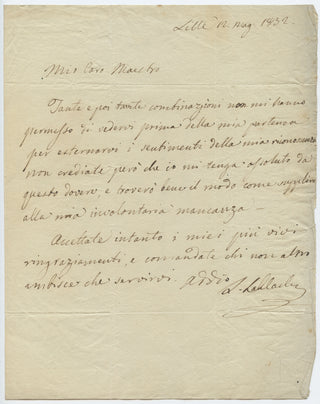 Lille 12 Mag 1832.
Mio Caro Maestro
Tante e poi tante combinazioni non mi hanno
permesso di vedervi prima della mia partenza
per esternarvi i sentimenti della mia riconoscenza
non crediate però che io mi tenga assoluto da
questo dovere, e troverò bene il modo come supplire
alla mia involontaria mancanza —
Accettate intanto i miei più vivi
ringraziamenti, e comandate chi non altro
ambisce che servirvi. Addio
L. Lablache